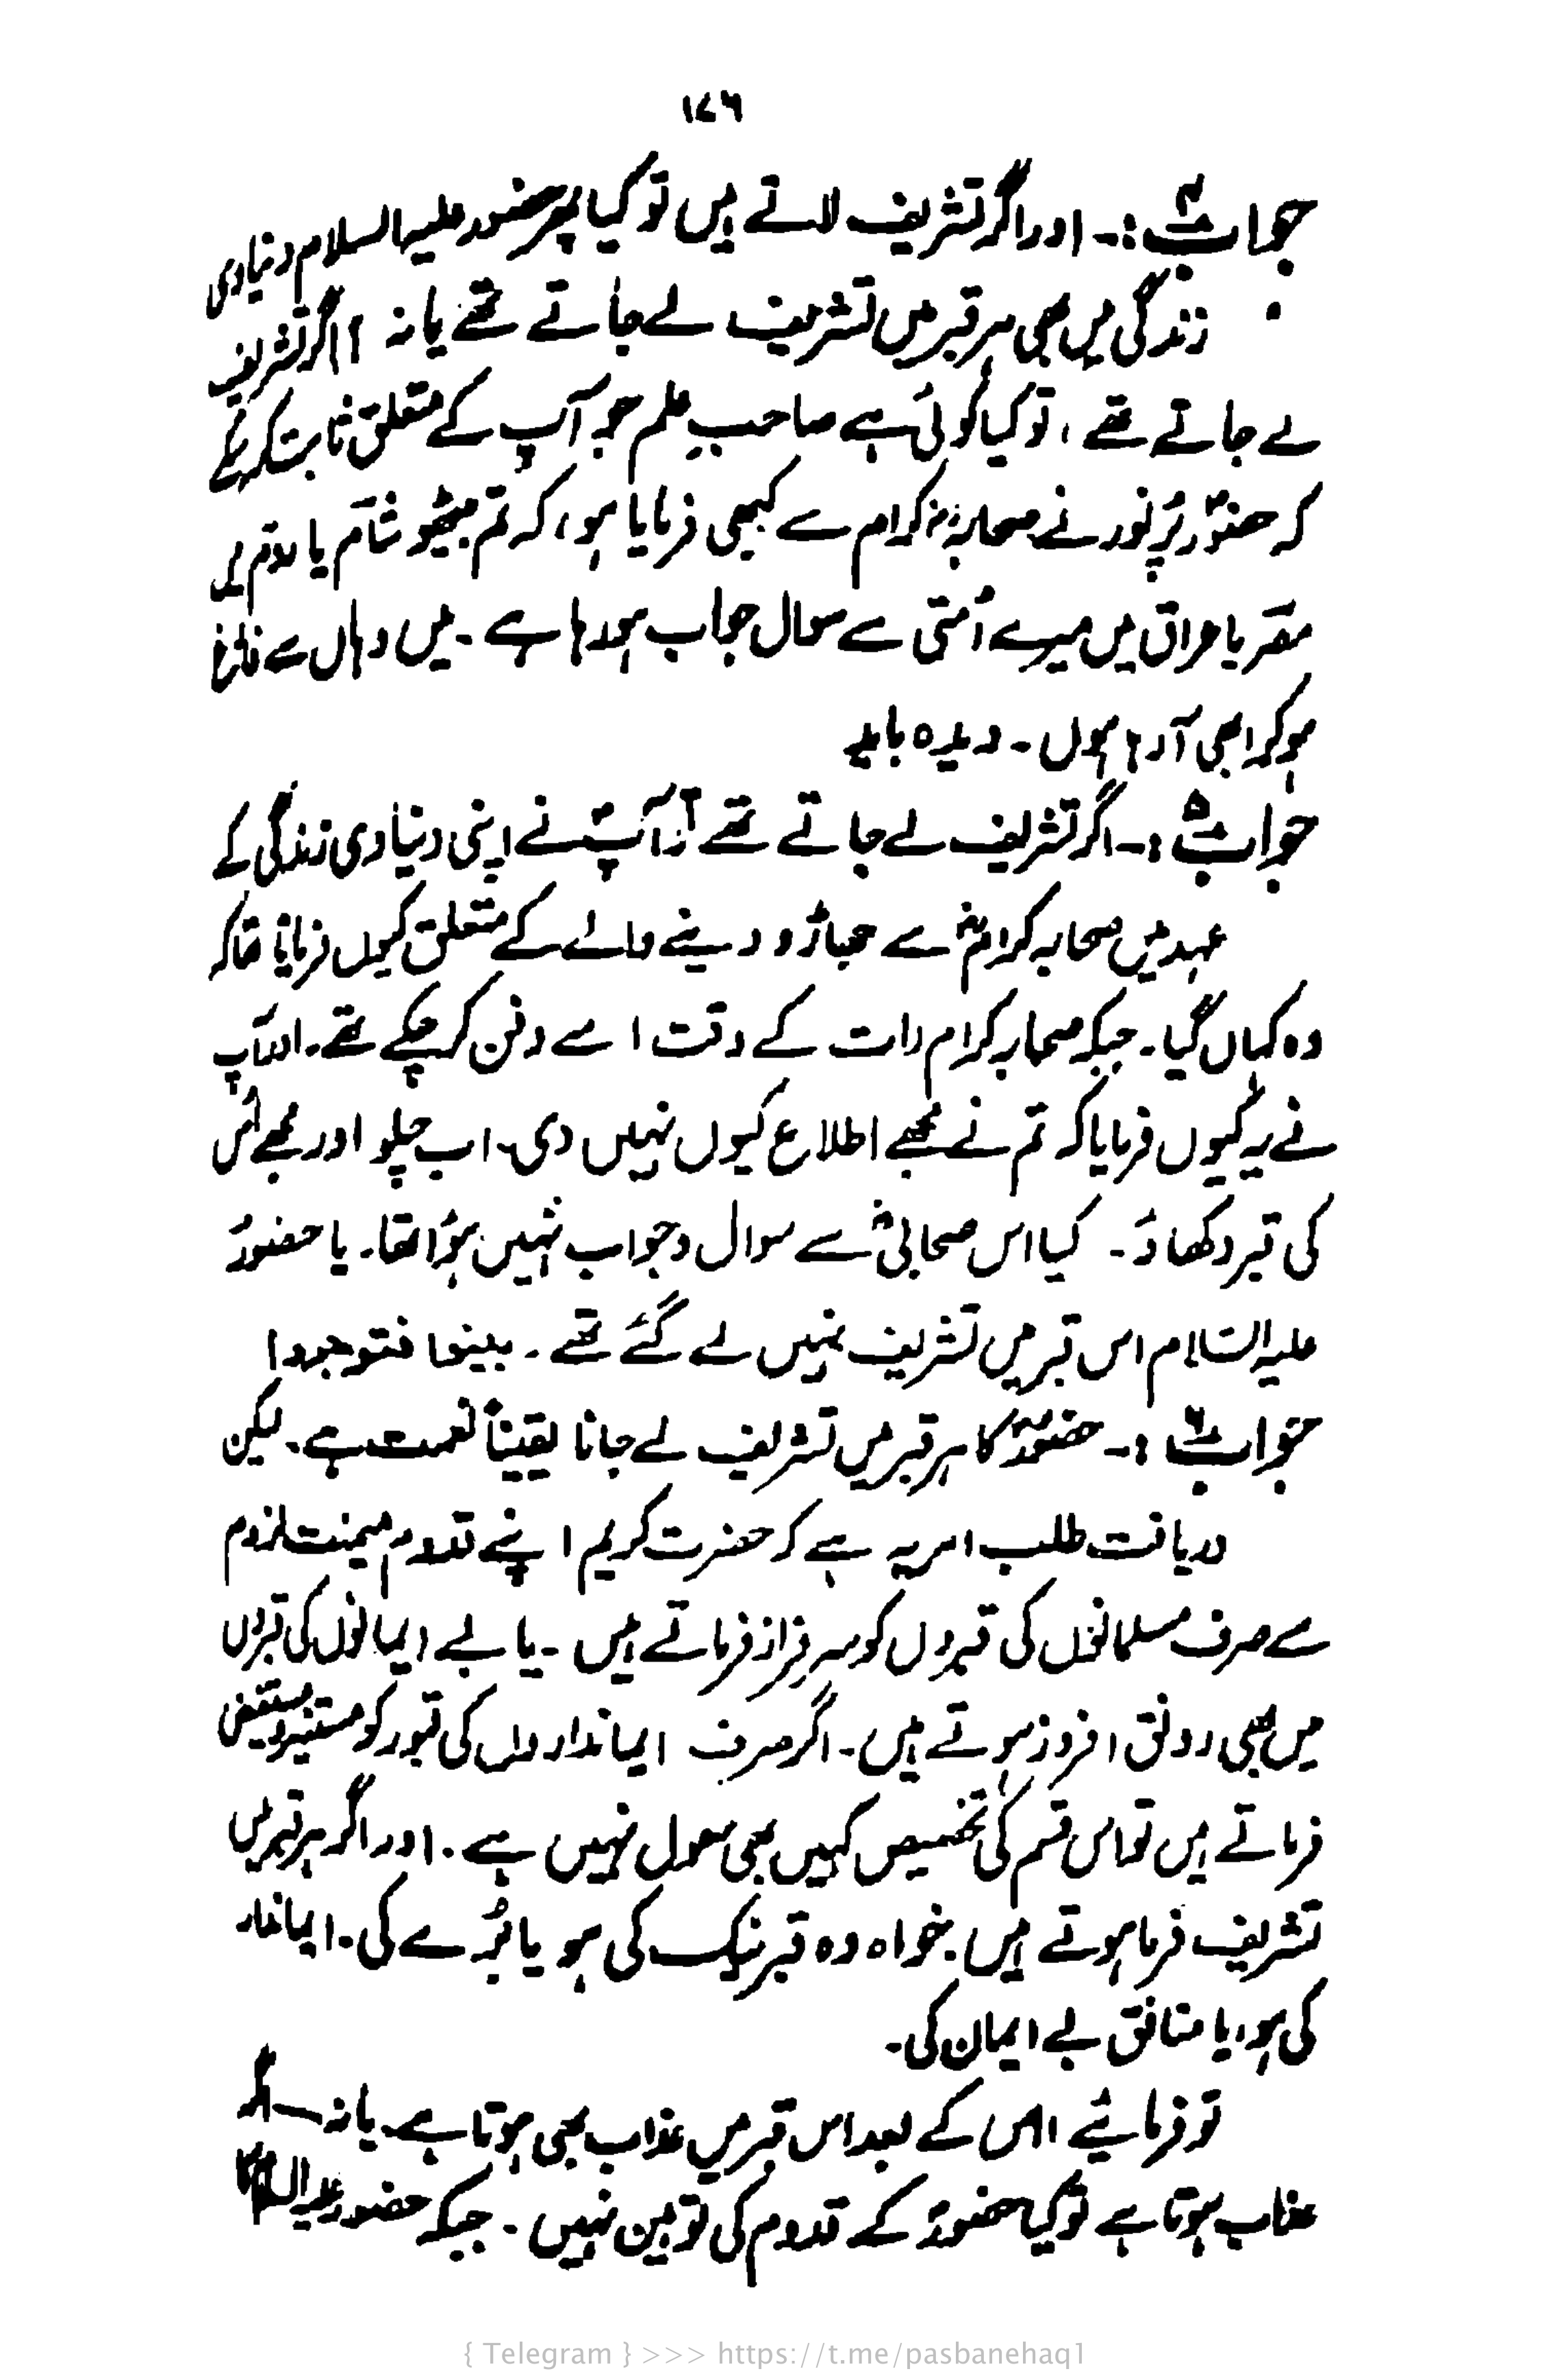 ۱۷۶
جواب ۴:۔ اور اگر تشریف لاتے ہیں تو کیا پھر حضور علیہ السلام دنیاوی
زندگی میں بھی ہر قبر میں تشریف لے جاتے تھے یا نہ ؟ اگر تشریف
لے جاتے تھے ، تو کیا کوئی ہے صاحبِ علم جو آپ کے متعلق ثابت کر سکے
کہ حضورؐ پُر نور نے صحابہ کرام سے کبھی فرمایا ہو، کہ تم بیٹھو شام یا
مصر یا عراق میں میرے اُمتی سے سوال جواب ہو رہا ہے ۔ میں وہاں سے فارغ
ہو کر ابھی آ رہا ہوں ۔ دیدہ باید
جواب ۵:۔ اگر تشریف لے جاتے تھے تو آپؐ نے اپنی دنیاوی زندگی کے
عہد میں صحابہ کرامؓ سے جھاڑو دینے والے کے متعلق کیوں فرمایا تھا کہ
وہ کہاں گیا ۔ جبکہ صحابہ کرام رات کے وقت اسے دفن کر چکے تھے ۔ اور آپ
نے یہ کیوں فرمایا کہ تم نے مجھے اطلاع کیوں نہیں دی۔ اب چلو اور مجھے اُس
کی قبر دکھاؤ ۔ کیا اس صحابیؓ سے سوال و جواب نہیں ہؤا تھا ۔ یا حضورؐ
علیہ السّلام اس قبر میں تشریف نہیں لے گئے تھے ۔ بینوا فتوجروا
جواب ۶:۔ حضورؐ کا ہر قبر میں تشریف لے جانا یقیناً نعمت ہے ۔ لیکن
دریافت طلب امر یہ ہے کہ حضرت کریم اپنے قدوم میمنت لزوم
سے صرف مسلمانوں کی قبروں کو سرفراز فرماتے ہیں ۔ یا بے ایمانوں کی قبروں
میں بھی رونق افروز ہوتے ہیں ۔ اگر صرف ایمانداروں کی قبور کو مستنیر و مستفیض
فرماتے ہیں تو اس قسم کی تخصیص کہیں بھی منقول نہیں ہے ۔ اور اگر ہر قبر میں
تشریف فرما ہوتے ہیں ۔ خواہ وہ قبر نیک کی ہو یا بُرے کی ۔ ایماندار
کی ہو، یا منافق بے ایمان کی ۔
تو فرمائیے اس کے بعد اس قبر میں عذاب بھی ہوتا ہے یا نہ ـــ اگر
عذاب ہوتا ہے تو کیا حضورؐ کے قدوم کی توہین نہیں ۔ جبکہ حضور علیہ السلام
{ Telegram } >>> https://t.me/pasbanehaq1